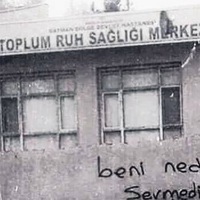 BATMAN BÖLGE DEVLET HASTANESİ
TOPLUM RUH SAĞLIĞI MERKEZ
beni ned
Sevmedi